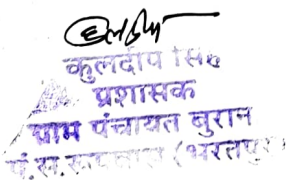 कुलदीप सिंह
प्रशासक
ग्राम पंचायत बुरान
पं.स.रूपवास (भरतपुर)